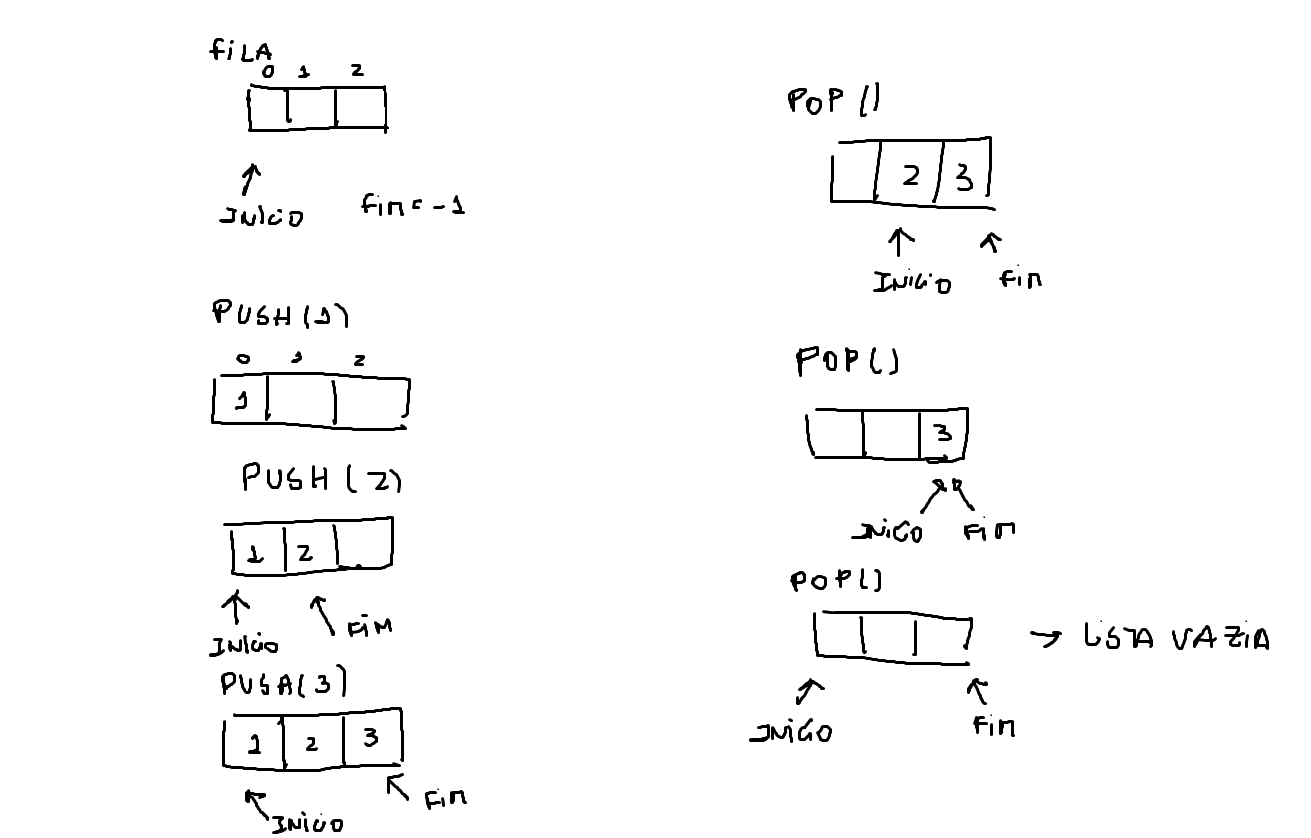 FILA
0 1 2
INICIO
FIM = -1
PUSH(1)
0 1 2
1
PUSH(2)
1 2
INICIO FIM
PUSA(3)
1 2 3
INICIO FIM
POP()
2 3
INICIO FIM
POP()
3
INICO FIM
POP()
→ LISTA VAZIA
INICO FIM